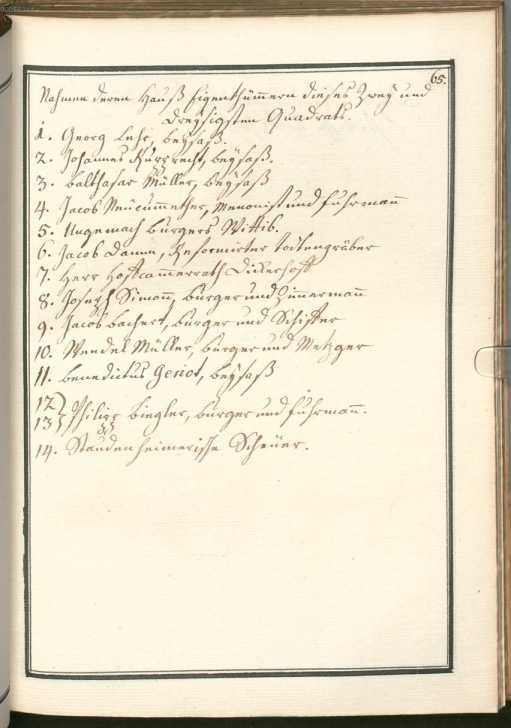 65.
Nahmen deren Hauß Eigenthümmern dieses Zwey und
Dreysigsten Quadrats.
1. Georg Lehe, beysaß.
2. Johannes beysaß.
3. balthasar Müller, beysaß
4. Jacob Menonist und fuhrmann
5. Ungemach bürgers Wittib.
6. Jacob Damm, Reformirter todtengräber
7. Herr Hoffcammerrath Dickerhoff
8. Joseph Simonn, bürger und Zimermann
9. Jacob bachert, bürger und Schiffer
10. Wendel Müller, bürger und Metzger
11. benedictus Gesiot, beysaß
12)
13} Philipp biegler, bürger und fuhrmann.
14. Staudenheimerische Scheuer.